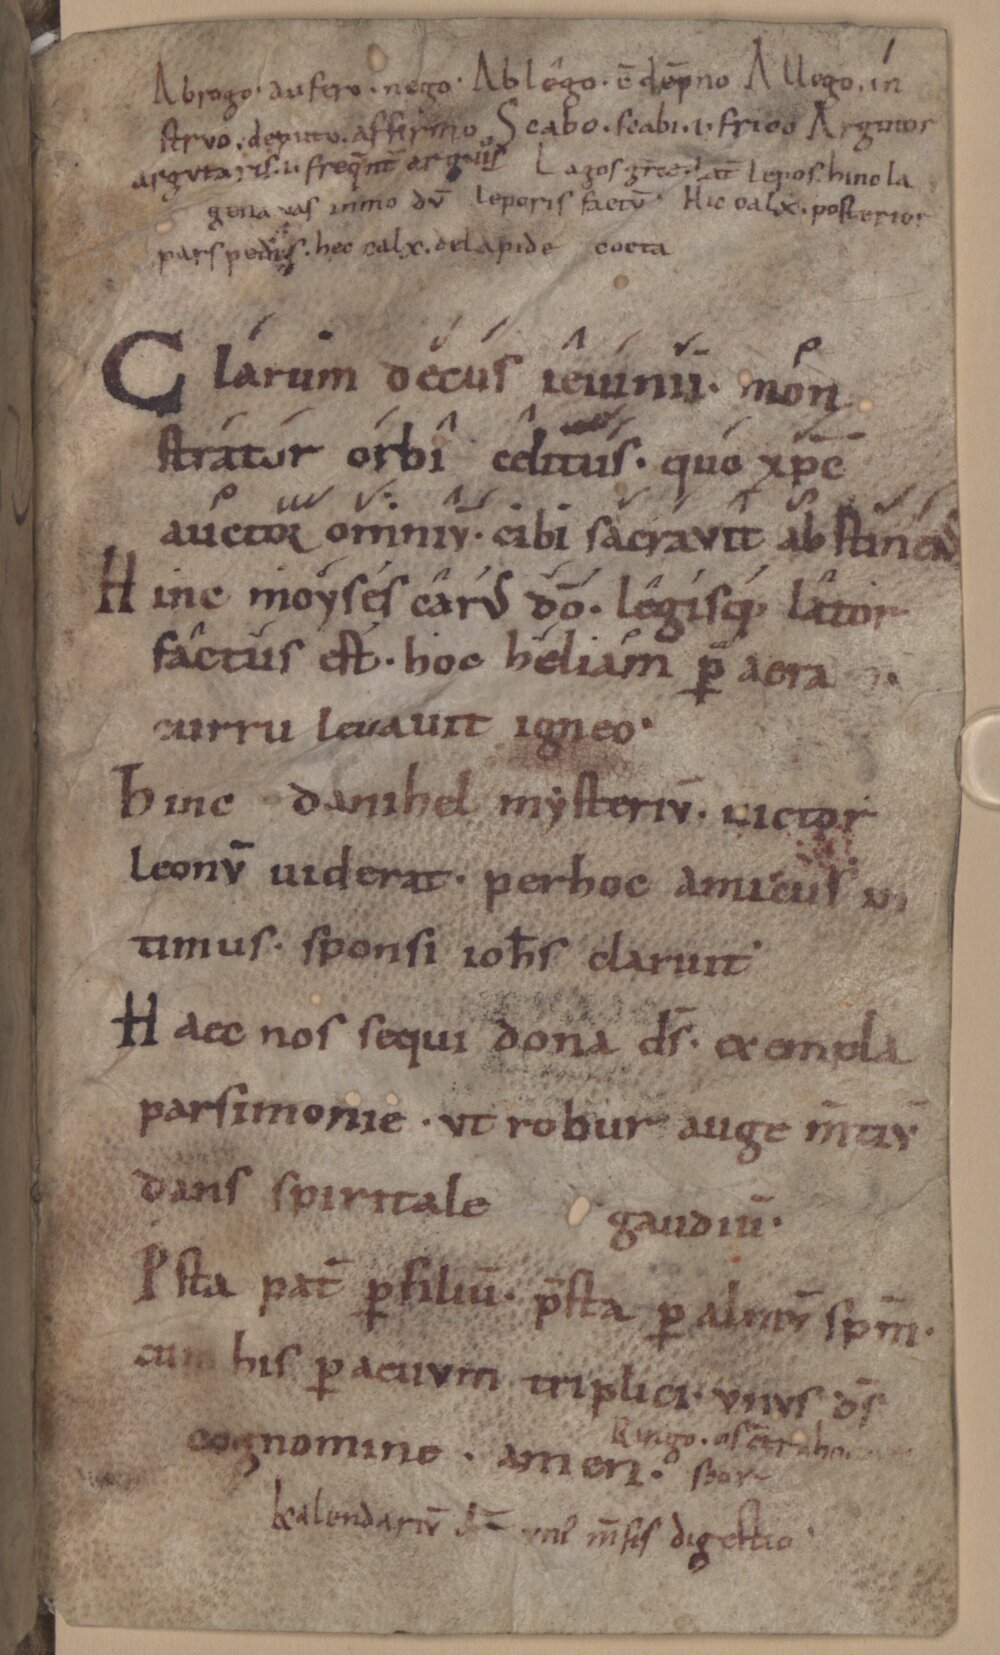 Abrogo· aufero· nego· Ablego· ē dep̄no Allego. in
struo. deputo. affirmo. Scabo. scabi. i. frico Arguor
argutaris. i. freq̄nt̄ arguis Lagos grece. lat̄ lepos. hinc la
gena vas inmodū leporis factū· Hic calx. posterior
pars pedis. hec calx. de lapide cocta
Clarum decus ieiunii· mon
stratur orbi celitus· quo xp̄c
auctor omniū· cibi sacravit abstinen
Hinc moyses carus dō· legisq; lator
factus est· hoc heliam p̄ aera
curru levavit igneo·
Hinc danihel mysteriū· uictor
leonū uiderat· per hoc amicus in
timus· sponsi ioħs claruit·
Haec nos sequi dona ds̄· exempla
parsimonie· ut robur auge m̄tiū
dans spiritale gaudiū·
Psta pat̄ p filiū· p̄sta p almū sp̄m·
cum his p aeuum triplici· unus ds̄
cognomine· amen·
Ringo· os
Kalendariū m̄sis digestio